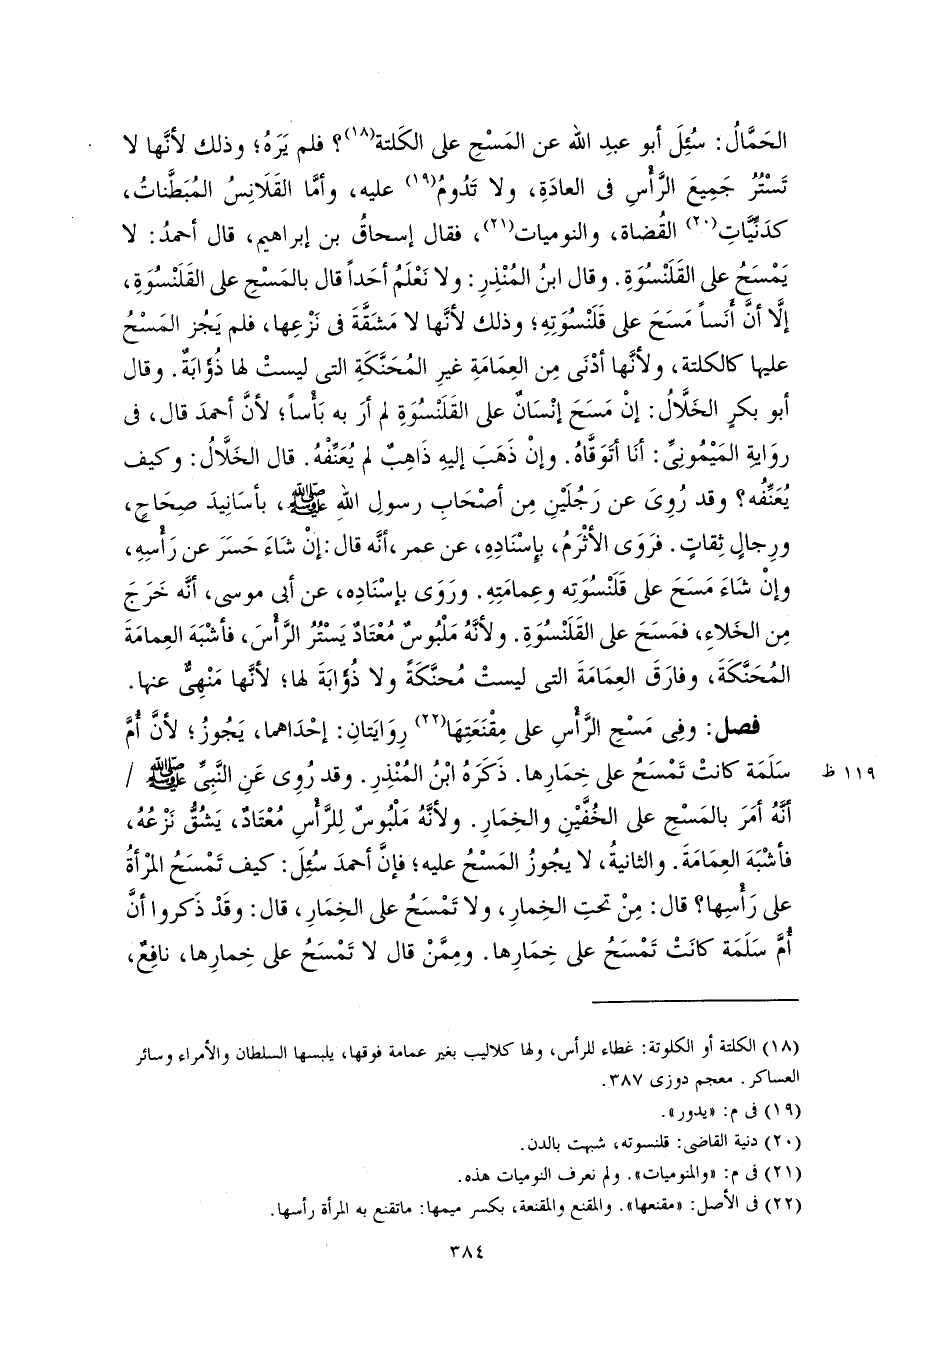 الحَمَّالُ: سُئِلَ أبو عبدِ الله عن المَسْحِ على الكَلتة(١٨)؟ فلم يَرَهُ؛ وذلك لأنَّها لا
تَسْتُرُ جَمِيعَ الرَّأْسِ فى العادَةِ، ولا تَدُومُ(١٩) عليه، وأمَّا القَلَانِسُ المُبَطَّناتُ،
كدَنِّيَّاتِ(٢٠) القُضاة، والنوميات(٢١)، فقال إسحاقُ بن إبراهيم، قال أحمدُ: لا
يَمْسَحُ على القَلَنْسُوَةِ. وقال ابنُ المُنْذِرِ: ولا نَعْلَمُ أحَداً قال بالمَسْحِ على القَلَنْسُوَةِ،
إلَّا أنَّ أَنَساً مَسَحَ على قَلَنْسُوَتِهِ؛ وذلك لأنَّها لا مَشَقَّةَ فى نَزْعِها، فلم يَجُز المَسْحُ
عليها كالكلتة، ولأنَّها أدْنَى مِن العِمَامَةِ غيرِ المُحَنَّكَةِ التى ليستْ لها ذُؤَابَةٌ. وقال
أبو بكرٍ الخَلَّالُ: إنْ مَسَحَ إنْسَانٌ على القَلَنْسُوَةِ لم أرَ به بَأْساً؛ لأنَّ أحمدَ قال، فى
روايةِ المَيْمُونِىِّ: أنَا أتَوَقَّاهُ. وإنْ ذَهَبَ إليهِ ذَاهِبٌ لم يُعَنِّفْهُ. قال الخَلَّالُ: وكيف
يُعَنِّفُه؟ وقد رُوِىَ عن رَجُلَيْنِ مِن أصْحَابِ رسولِ اللهِ ﷺ، بأسَانِيدَ صِحَاحٍ،
ورِجالٍ ثِقاتٍ. فرَوَى الأثْرَمُ، بإسْنَادِهِ، عن عمر، أنَّه قال: إنْ شَاءَ حَسَرَ عن رَأْسِهِ،
وإنْ شَاءَ مَسَحَ على قَلَنْسُوَتِه وعِمامَتِهِ. ورَوَى بإسْنَادِه، عن أبى موسى، أنَّه خَرَجَ
مِن الخَلاءِ، فمَسَحَ على القَلَنْسُوَةِ. ولأنَّهُ مَلْبُوسٌ مُعْتَادٌ يَسْتُرُ الرَّأْسَ، فأشْبَهَ العِمامَةَ
المُحَنَّكَةَ، وفارَقَ العِمَامَةَ التى ليستْ مُحنَّكَةً ولا ذُؤَابَةَ لها؛ لأنَّها مَنْهِىٌّ عنها.
فصل: وفِى مَسْحِ الرَّأْسِ على مِقْنَعَتِهَا(٢٢) رِوَايَتانِ: إحْدَاهما، يَجُوزُ؛ لأنَّ أُمَّ
سَلَمَة كانتْ تَمْسَحُ على خِمَارِها. ذَكَرَهُ ابْنُ المُنْذِرِ. وقد رُوِى عَنِ النَّبِىِّ ﷺ / ١١٩ ظ
أنَّهُ أمَرَ بالمَسْحِ على الخُفَّيْنِ والخِمَارِ. ولأنَّهُ مَلْبُوسٌ لِلرَّأْسِ مُعْتَادٌ، يَشُقُّ نَزْعُهُ،
فأشْبَهَ العِمَامَةَ. والثانيةُ، لا يجُوزُ المَسْحُ عليه؛ فإنَّ أحمدَ سُئِلَ: كيف تَمْسَحُ المرْأةُ
على رَأْسِها؟ قال: مِنْ تحتِ الخِمارِ، ولا تَمْسَحُ على الخِمَارِ، قال: وقَدْ ذَكروا أنَّ
أُمَّ سَلَمَة كانَتْ تَمْسَحُ على خِمَارِها. ومِمَّنْ قال لا تَمْسَحُ على خِمارِها، نافِعٌ،
(١٨) الكلتة أو الكلوتة: غطاء للرأس، ولها كلاليب بغير عمامة فوقها، يلبسها السلطان والأمراء وسائر
العساكر. معجم دوزى ٣٨٧.
(١٩) فى م: «يدور».
(٢٠) دنية القاضى: قلنسوته، شبهت بالدن.
(٢١) فى م: «والمنوميات». ولم نعرف النوميات هذه.
(٢٢) فى الأصل: «مقنعها». والمقنع والمقنعة، بكسر ميمها: ماتقنع به المرأة رأسها.
٣٨٤